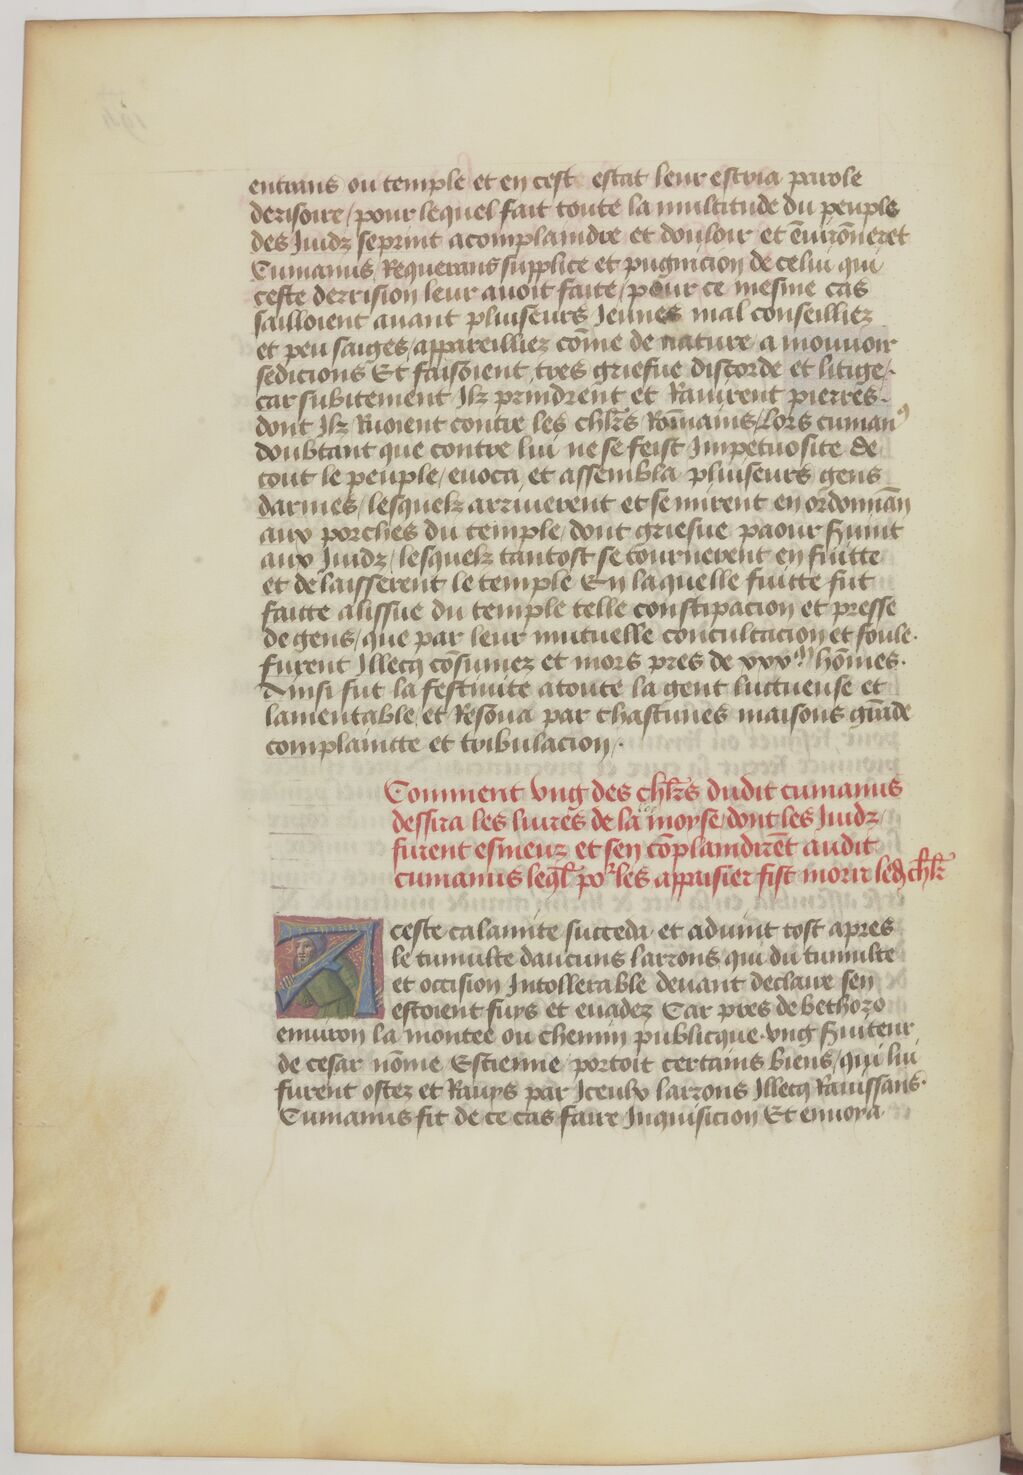 entrans ou temple et en cest estat leur escria parole
derisoire / pour lequel fait toute la multitude du peuple
des Juidz se print a complaindre et douloir et ēuirōneret
Cumanus / Requerans supplice et pugnicion de celui qui
ceste derrision leur auoit faite / pour ce mesme cas
sailloient auant pluiseurs Jeunes mal conseilliez
et peu saiges / appareilliez cōme de nature a mouuoir
sedicions Et faisoient tres griefue discorde et litige /.
car subitement Ilz prindrent et Rauirent pierres.
dont Ilz Ruoient contre les chl̄rs Rōmains / Lors cumanꝰ
doubtant que contre lui ne se feist Impetuosite de
tout le peuple / euoca et assembla pluiseurs gens
darmes / lesquelz arriuerent et se mirent en ordonnāń
aux porches du temple / dont griefue paour suruint
aux Juidz / lesquelz tantost se tournerent en fuitte
et delaisserent le temple En laquelle fuitte fut
faitte a lissue du temple telle constipacion et presse
de gens / que par leur mutuelle conculcacion et foule.
furent Illecq cōsumez et mors pres de xxxᵐ hōmes.
Ainsi fut la festiuite a toute la gent luctueuse et
lamentable / et Resōna par chascunes maisons grāde
complaintte et tribulacion /.
Comment vng des chl̄rs dudit cumanus
dessira les liures de la loy moyse / dont les Juidz /
furent esmeuz et sen cōplaindirēt audit
cumanus leql̄ poʳ les appaisier fist morir ledꝭ chl̄r
A ceste calamite succeda et aduint tost apres
le tumulte daucuns larrons qui du tumulte
et occision Intollerable deuant declaire sen
estoient fuys et euadez Car pres de bethozo
enuiron la montee ou chemin publicque. vng seruiteur
de cesar nōme Estienne / portoit certains biens / qui lui
furent ostez et Rauys par Iceulx larrons Illecq Rauissans.
Cumanus fit de ce cas faire Inquisicion Et enuoya